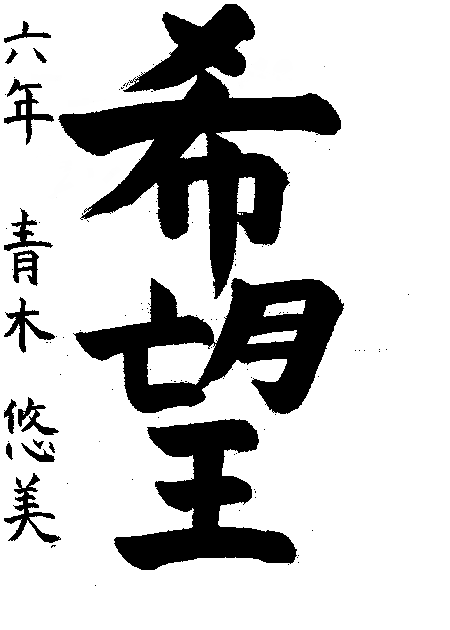 希望
六年 青木 悠美